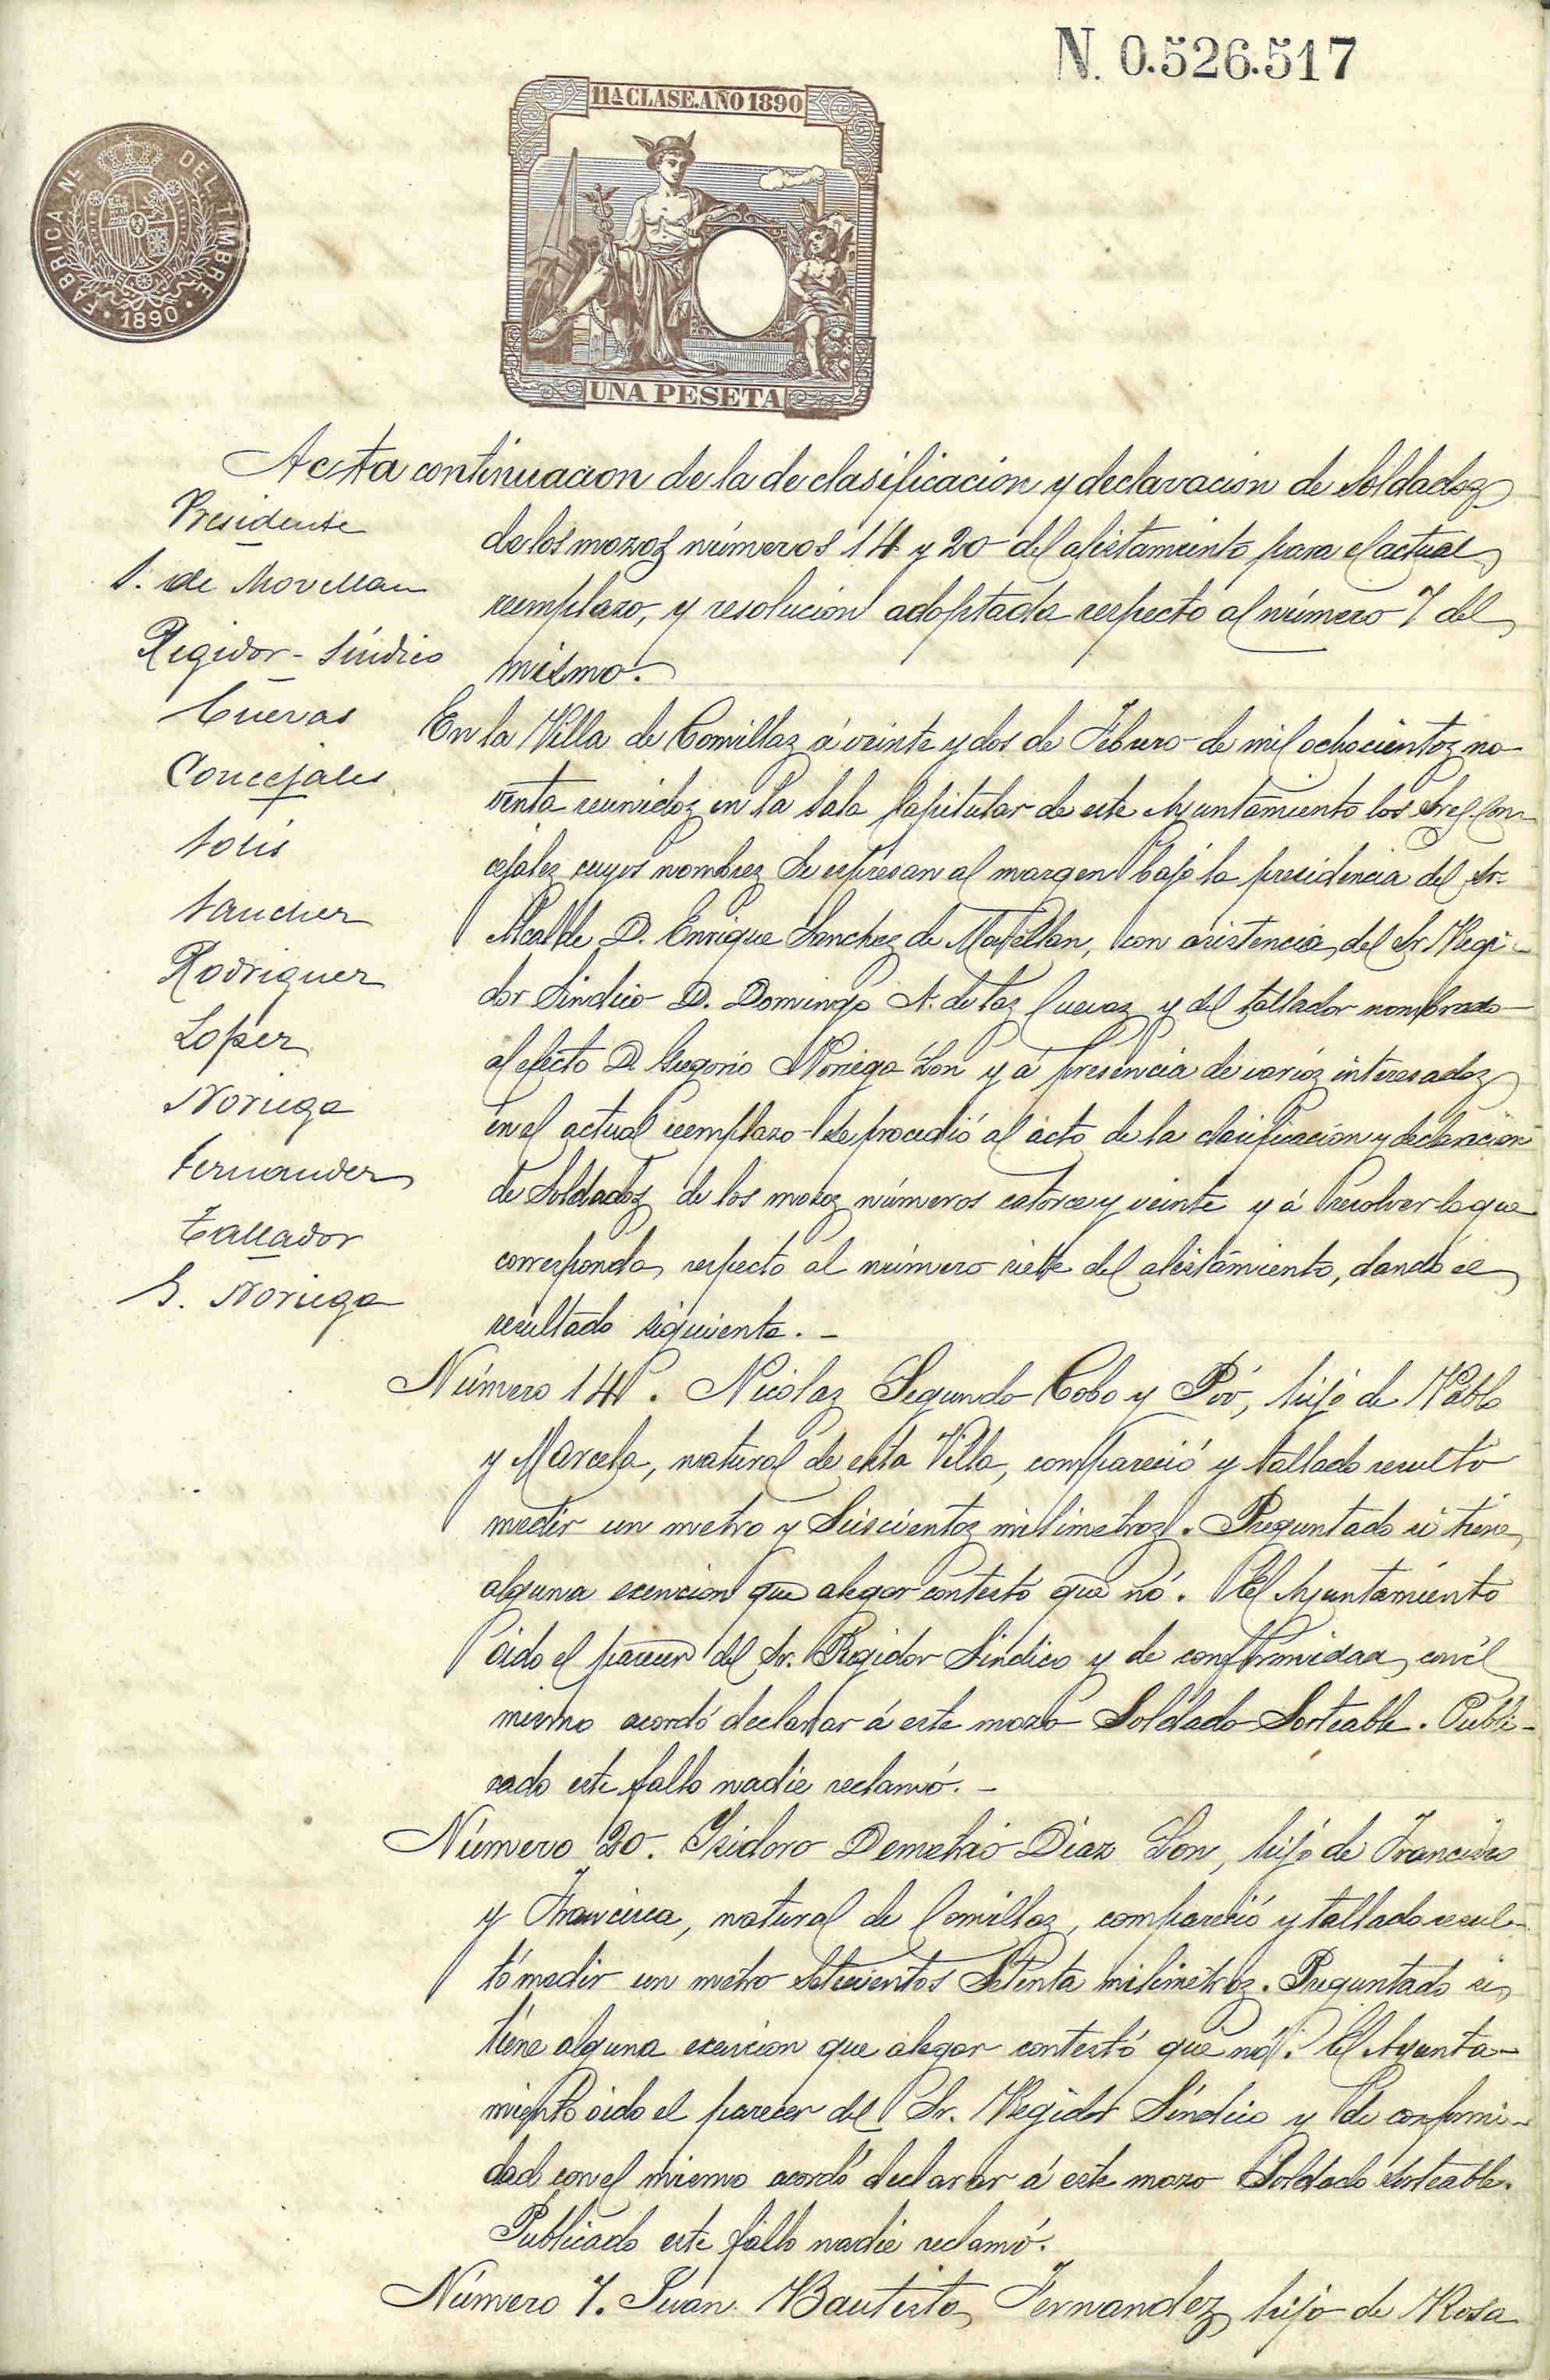 N. 0.526.517
11ª CLASE. AÑO 1890
FABRICA NL. DEL TIMBRE
1890
UNA PESETA
Acta continuacion de la de clasificacion y declaracion de Soldados
de los mozos números 14 y 20 del alistamiento para el actual
reemplazo, y resolucion adoptada respecto al número 7 del
mismo.
Presidente
S. de Movellan
Regidor-Síndico
Cuevas
Concejales
Solis
Sanchez
Rodriguez
Lopez
Noriega
Fernandez
Tallador
G. Noriega
En la Villa de Comillas á veinte y dos de Febrero de mil ochocientos no-
venta reunidos en la Sala Capitular de este Ayuntamiento los Sres. Con-
cejales cuyos nombres se espresan al margen bajo la presidencia del Sr.
Alcalde D. Enrique Sanchez de Movellan, con asistencia del Sr. Regi-
dor Sindico D. Domingo A. de las Cuevas y del tallador nombrado
al efecto D. Gregorio Noriega Zon y á presencia de varios interesados
en el actual reemplazo se procedió al acto de la clasificacion y declaracion
de Soldados de los mozos números catorce y veinte y á resolver lo que
corresponda respecto al número siete del alistamiento, dando el
resultado siguiente. -
Número 14. Nicolas Segundo Cobo y Póo, hijo de Pablo
y Marcela, natural de esta Villa, compareció y tallado resultó
medir un metro y Seiscientos milimetros. Preguntado si tiene
alguna exencion que alegar contestó que nó. El Ayuntamiento
oido el parecer del Sr. Regidor Sindico y de conformidad con el
mismo acordó declarar á este mozo Soldado Sorteable. Publi-
cado este fallo nadie reclamó. -
Número 20. Isidoro Demetrio Diaz Zon, hijo de Francisco
y Francisca, natural de Comillas, compareció y tallado resul-
tó medir un metro Setecientos Setenta milimetros. Preguntado si
tiene alguna exencion que alegar contestó que nó. El Ayunta-
miento oido el parecer del Sr. Regidor Síndico y de conformi-
dad con el mismo acordó declarar á este mozo Soldado Sorteable.
Publicado este fallo nadie reclamó.
Número 7. Juan Bautista Fernandez hijo de Rosa